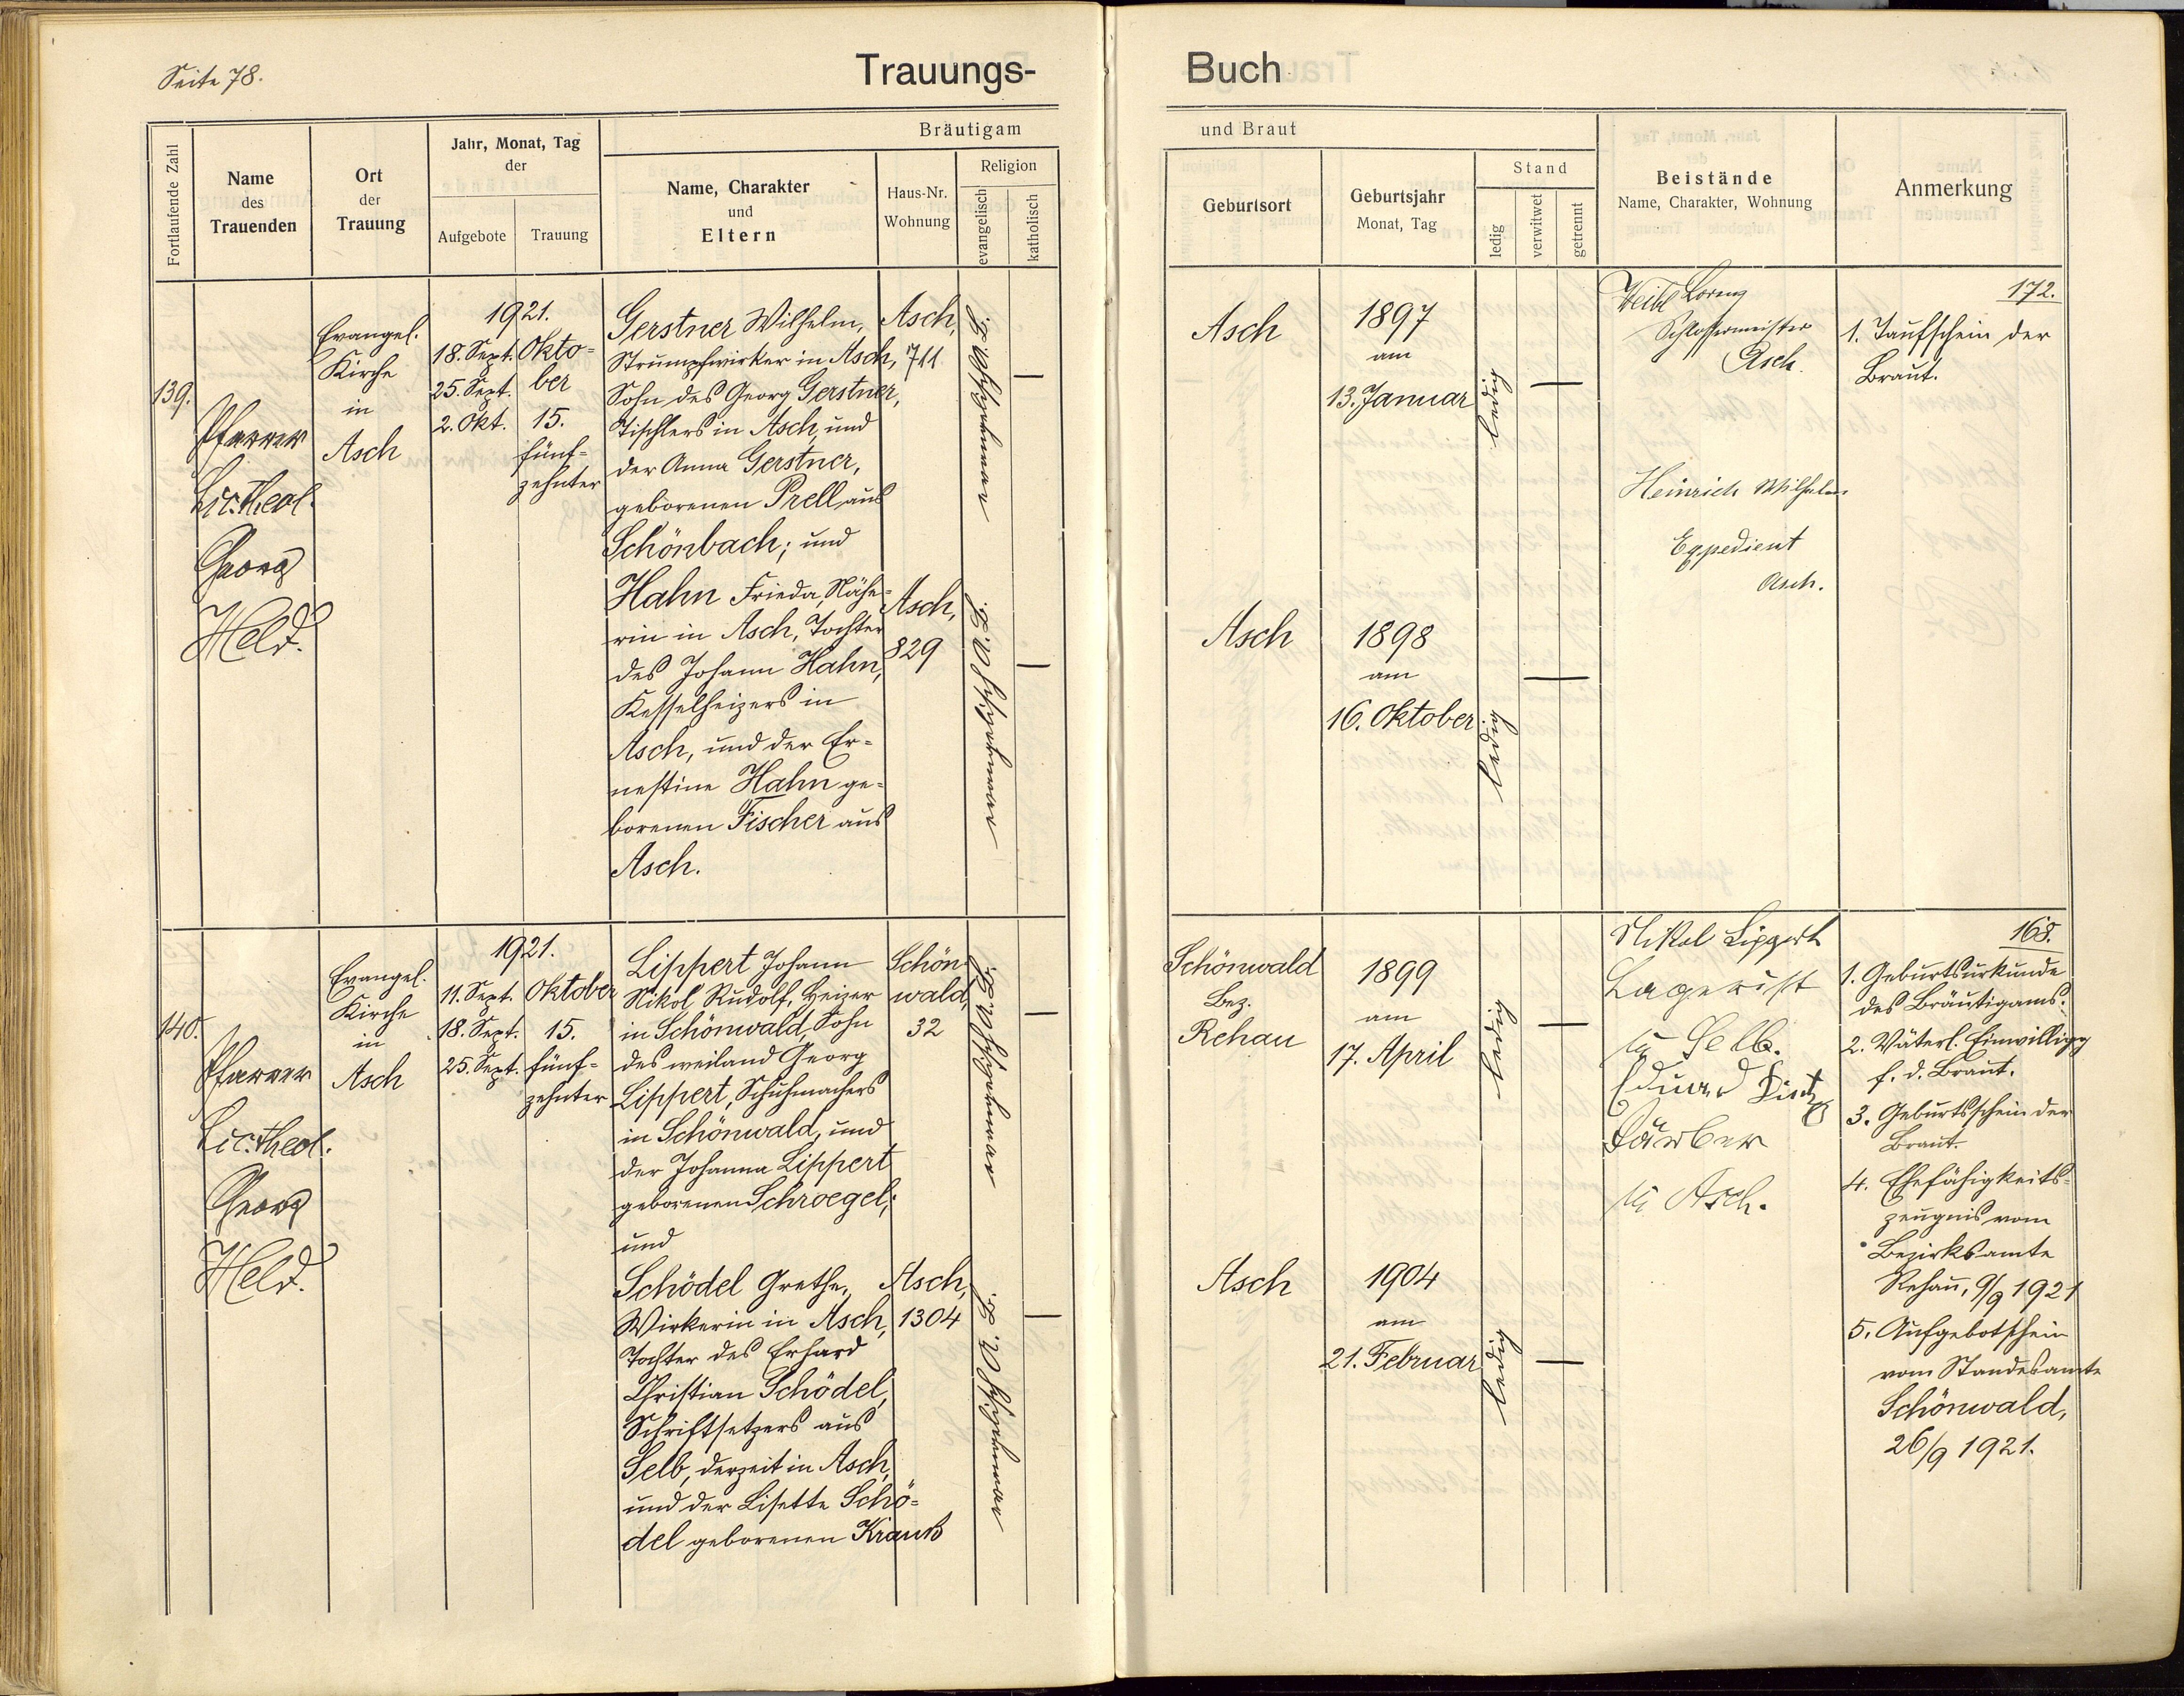 Seite 78.
Trauungs-
Buch
Fortlaufende Zahl
Name
des
Trauenden
Ort
der
Trauung
Jahr, Monat, Tag
der
Aufgebote
Trauung
Bräutigam
Name, Charakter
und
Eltern
Haus-Nr.
Wohnung
Religion
evangelisch
katholisch
und Braut
Geburtsort
Geburtsjahr
Monat, Tag
Stand
ledig
verwitwet
getrennt
Beistände
Name, Charakter, Wohnung
Anmerkung
139.
Pfarrer
Lic. theol.
Georg
Held.
Evangel.
Kirche
in
Asch
1921.
18. Sept.
25. Sept.
2. Okt.
Okto=
ber
15.
fünf=
zehnter
Gerstner Wilhelm,
Strumpfwirker in Asch,
Sohn des Georg Gerstner,
Tischlers in Asch, und
der Anna Gerstner,
geborenen Prell aus
Schönbach; und
Hahn Frieda, Nähe=
rin in Asch, Tochter
des Johann Hahn,
Kesselheizers in
Asch, und der Er=
nestine Hahn ge=
borenen Fischer aus
Asch.
Asch,
711
Asch,
829
Asch
1897
am
13. Januar
ledig
Asch
1898
am
16. Oktober
ledig
Lorenz
Schlossermeister
Asch.
Heinrich Wilhelm
Expedient
Asch.
172.
1. Taufschein der
Braut.
140.
Pfarrer
Lic. theol.
Georg
Held.
Evangel.
Kirche
in
Asch
1921.
11. Sept.
18. Sept.
25. Sept.
Oktober
15.
fünf=
zehnter
Lippert Johann
Nikol Rudolf, Heizer
in Schönwald, Sohn
des weiland Georg
Lippert, Schuhmachers
in Schönwald, und
der Johanna Lippert
geborenen Schroegel;
und
Schödel Grethe,
Wirkerin in Asch,
Tochter des Erhard
Christian Schödel,
Schriftsetzers aus
Selb, derzeit in Asch,
und der Lisette Schö=
del geborenen Krauß
Schön=
wald,
32
Asch,
1304
Schönwald
Bez.
Rehau
1899
am
17. April
ledig
Asch
1904
am
21. Februar
ledig
Nikol Lippert
Lagerist
in Selb.
Eduard
Färber
in Asch.
168.
1. Geburtsurkunde
des Bräutigams.
2. Väterl. Einwilligg
f. d. Braut.
3. Geburtsschein der
Braut.
4. Ehefähigkeits=
zeugnis vom
Bezirksamte
Rehau, 9/9 1921
5. Aufgebotschein
vom Standesamte
Schönwald,
26/9 1921.